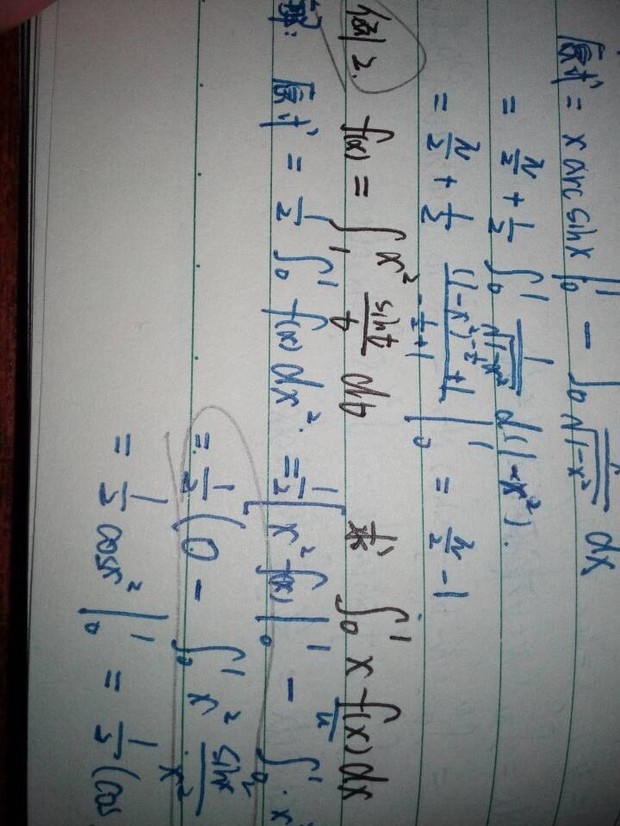 原式 = x arcsinx |₀¹ - ∫₀ x/√(1-x²) dx
= π/2 + 1/2 ∫₀¹ 1/√(1-x²) d(1-x²).
= π/2 + 1/2 (1-x²)^(-1/2+1)/(-1/2+1) |₀¹ = π/2 - 1
例2. f(x) = ∫₁^(x²) sint/t dt 求 ∫₀¹ x f(x) dx
解: 原式 = 1/2 ∫₀¹ f(x) dx². = 1/2 [x² f(x) |₀¹ - ∫₀¹ x
= 1/2 (0 - ∫₀¹ x² sinx²/x²
= 1/2 cosx² |₀¹ = 1/2 (cos